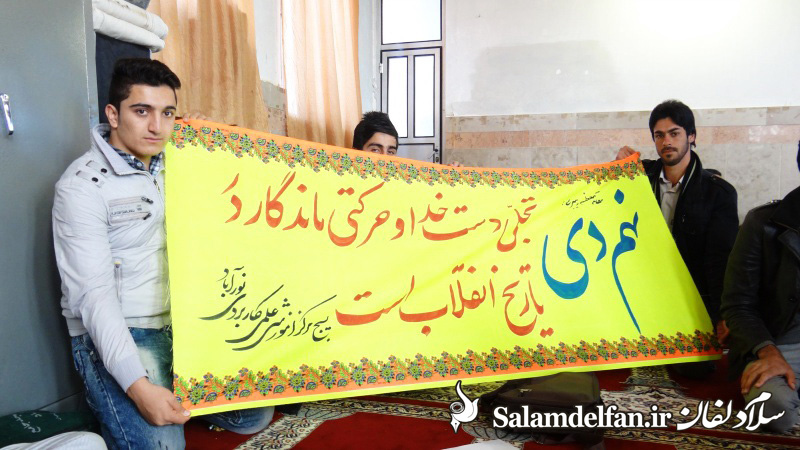 نهم دی
تجلّی دست خدا و حرکتی ماندگار دُ
یا رتخ انقلاب است
بسیج مرکز آموزشی علمی کاربردی نورآباد
Salamdelfan.ir سلام دلفان